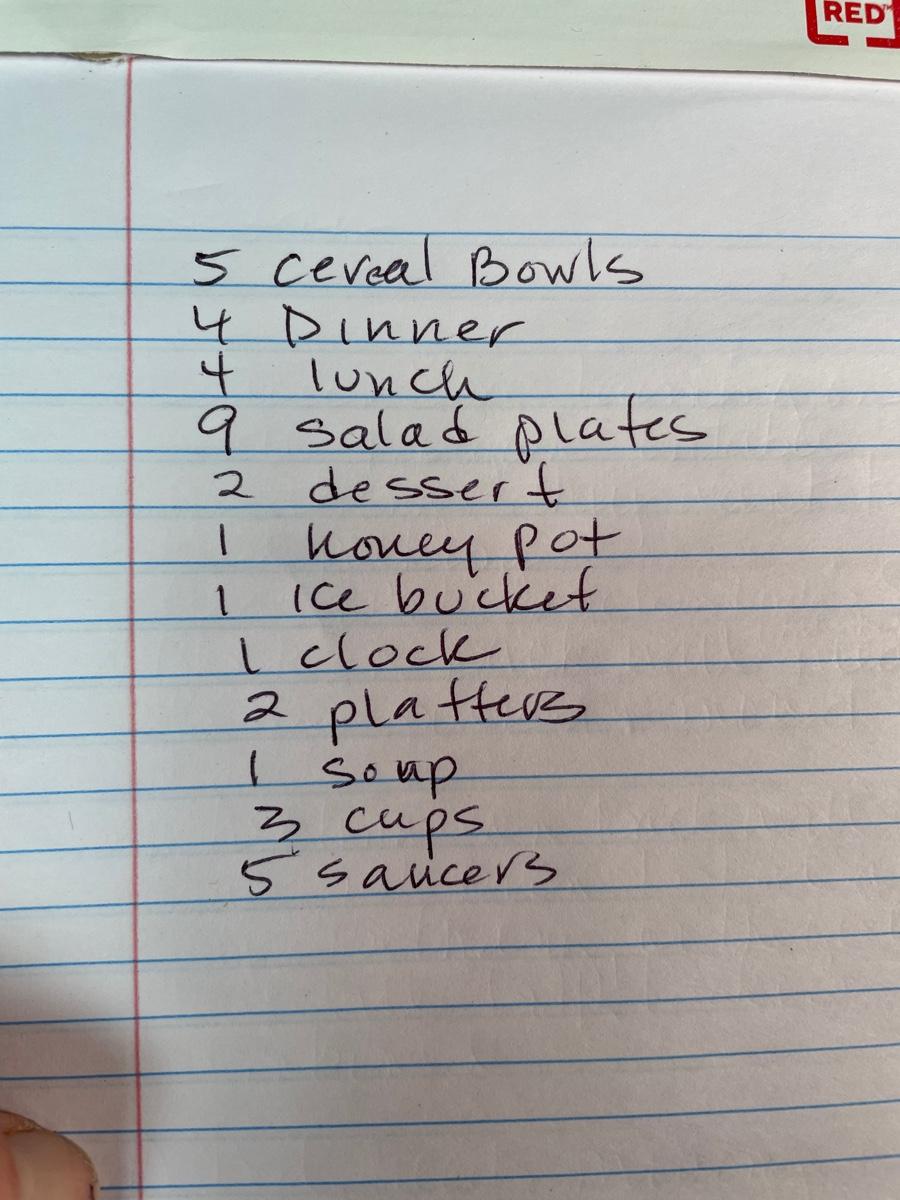 RED™
5 cereal Bowls
4 Dinner
4 lunch
9 salad plates
2 dessert
1 honey pot
1 ice bucket
1 clock
2 platters
1 soup
3 cups
5 saucers